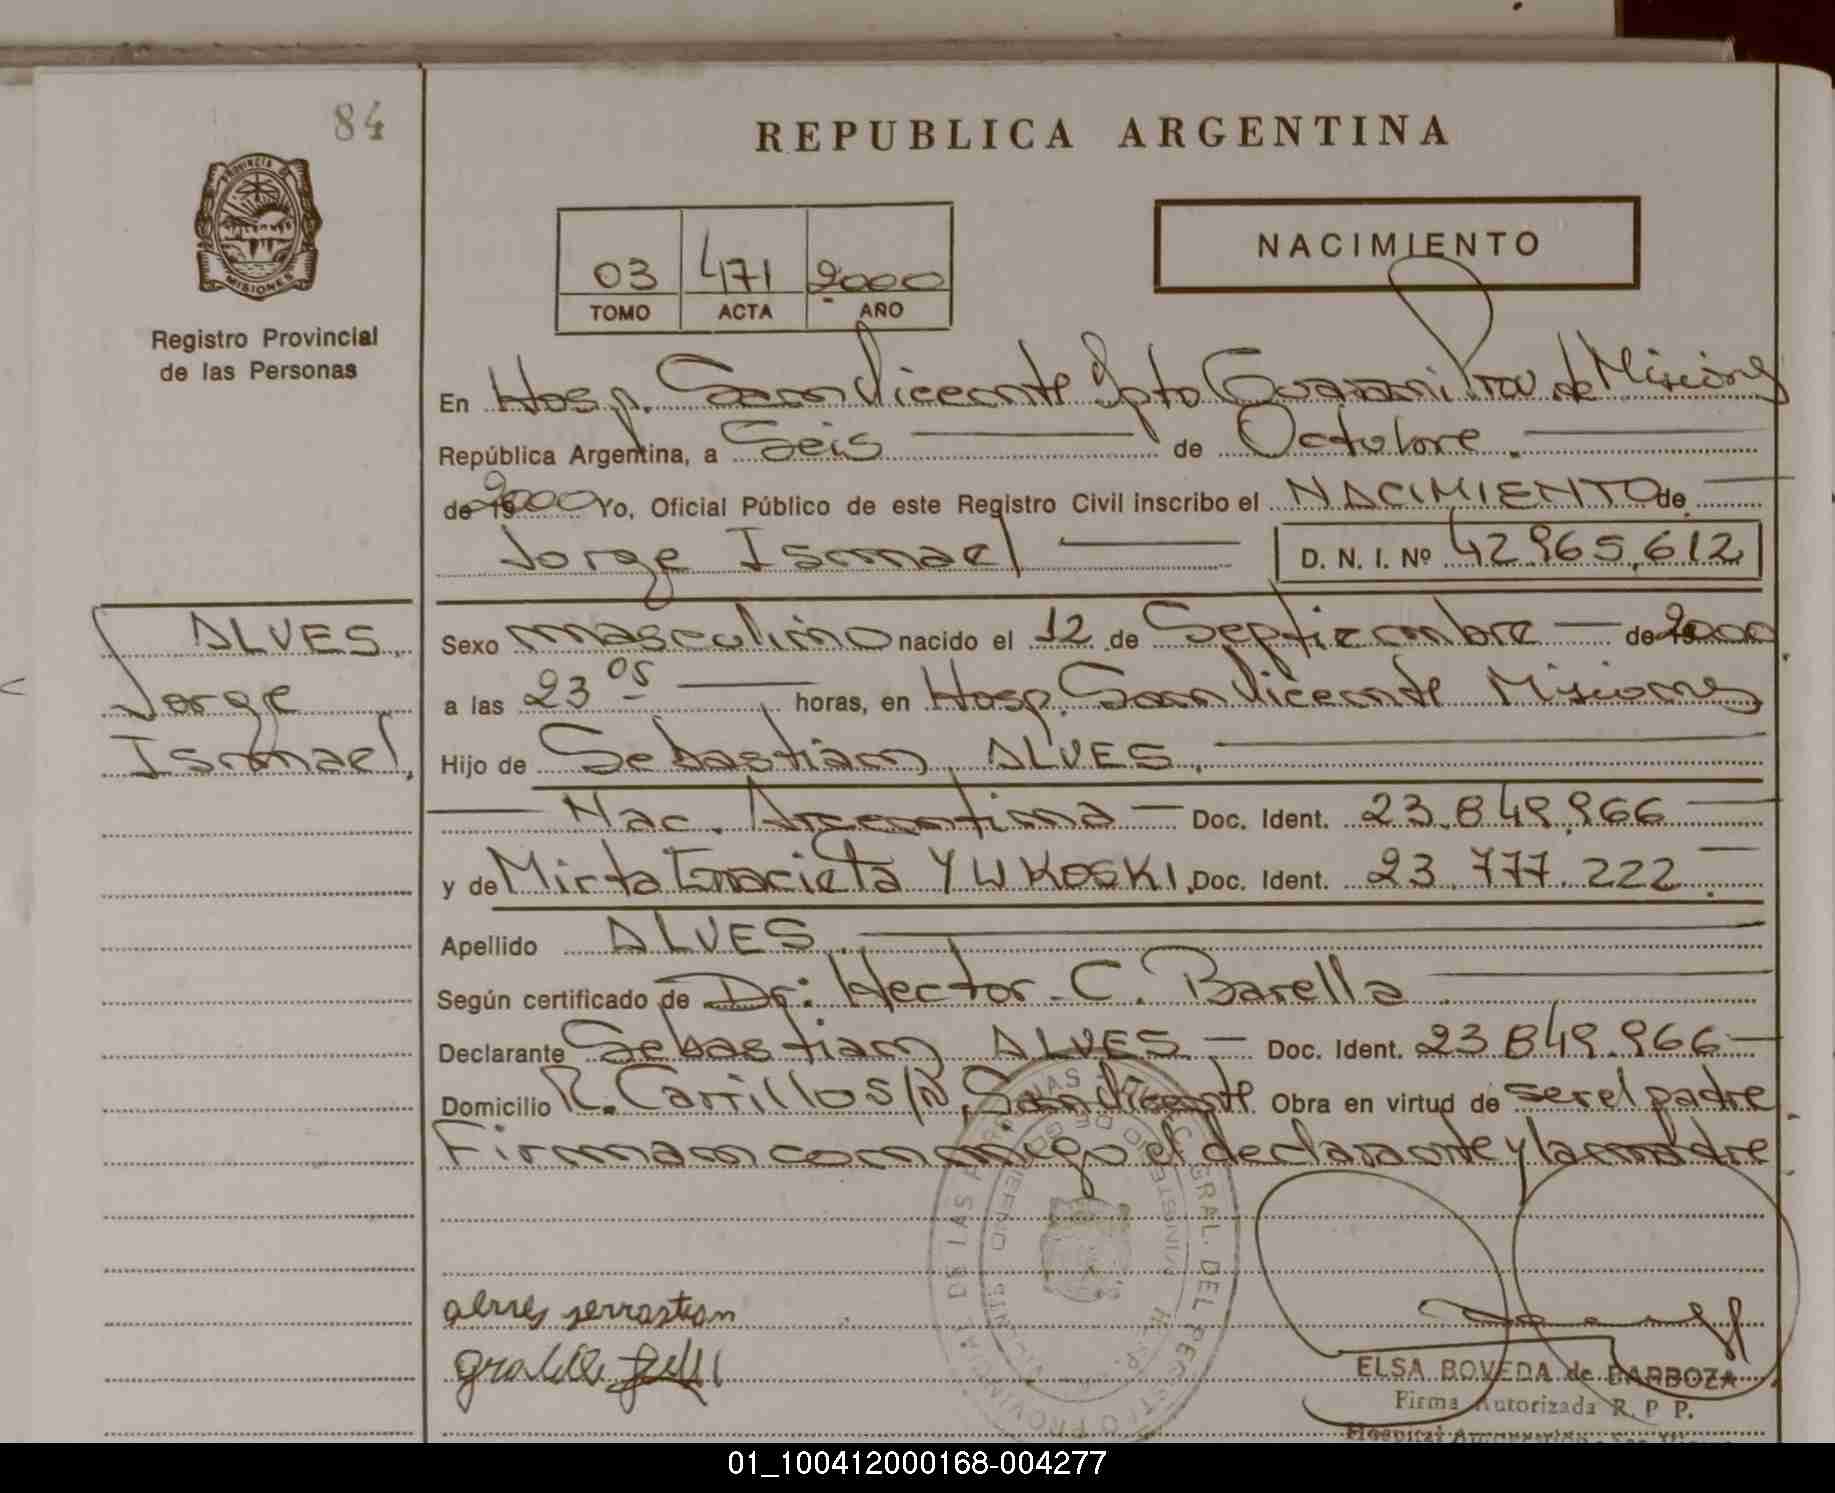 84
REPUBLICA ARGENTINA
PROVINCIA DE
MISIONES
Registro Provincial
de las Personas
03 471 2000
TOMO ACTA AÑO
NACIMIENTO
En Hosp. San Vicente Dpto Guarani Prov. de Misiones
República Argentina, a Seis de Octubre.
de 2000 Yo, Oficial Público de este Registro Civil inscribo el NACIMIENTO de
Jorge Ismael D. N. I. Nº 42.965.612
ALVES,
Jorge
Ismael,
Sexo masculino nacido el 12 de Septiembre de 2000
a las 23 05 horas, en Hosp. San Vicente Misiones
Hijo de Sebastián ALVES,
Nac. Argentina Doc. Ident. 23.849.966
y de Mirta YWKOSKI, Doc. Ident. 23.777.222.
Apellido ALVES.
Según certificado de Dr: Hector C. Barella
Declarante Sebastian ALVES Doc. Ident. 23.849.966
Domicilio R. Carrillo S/N, San Vicente Obra en virtud de ser el padre
Firman conmigo el declarante y la madre
ELSA BOVEDA de BARBOZA
Firma Autorizada R. P P.
01_100412000168-004277